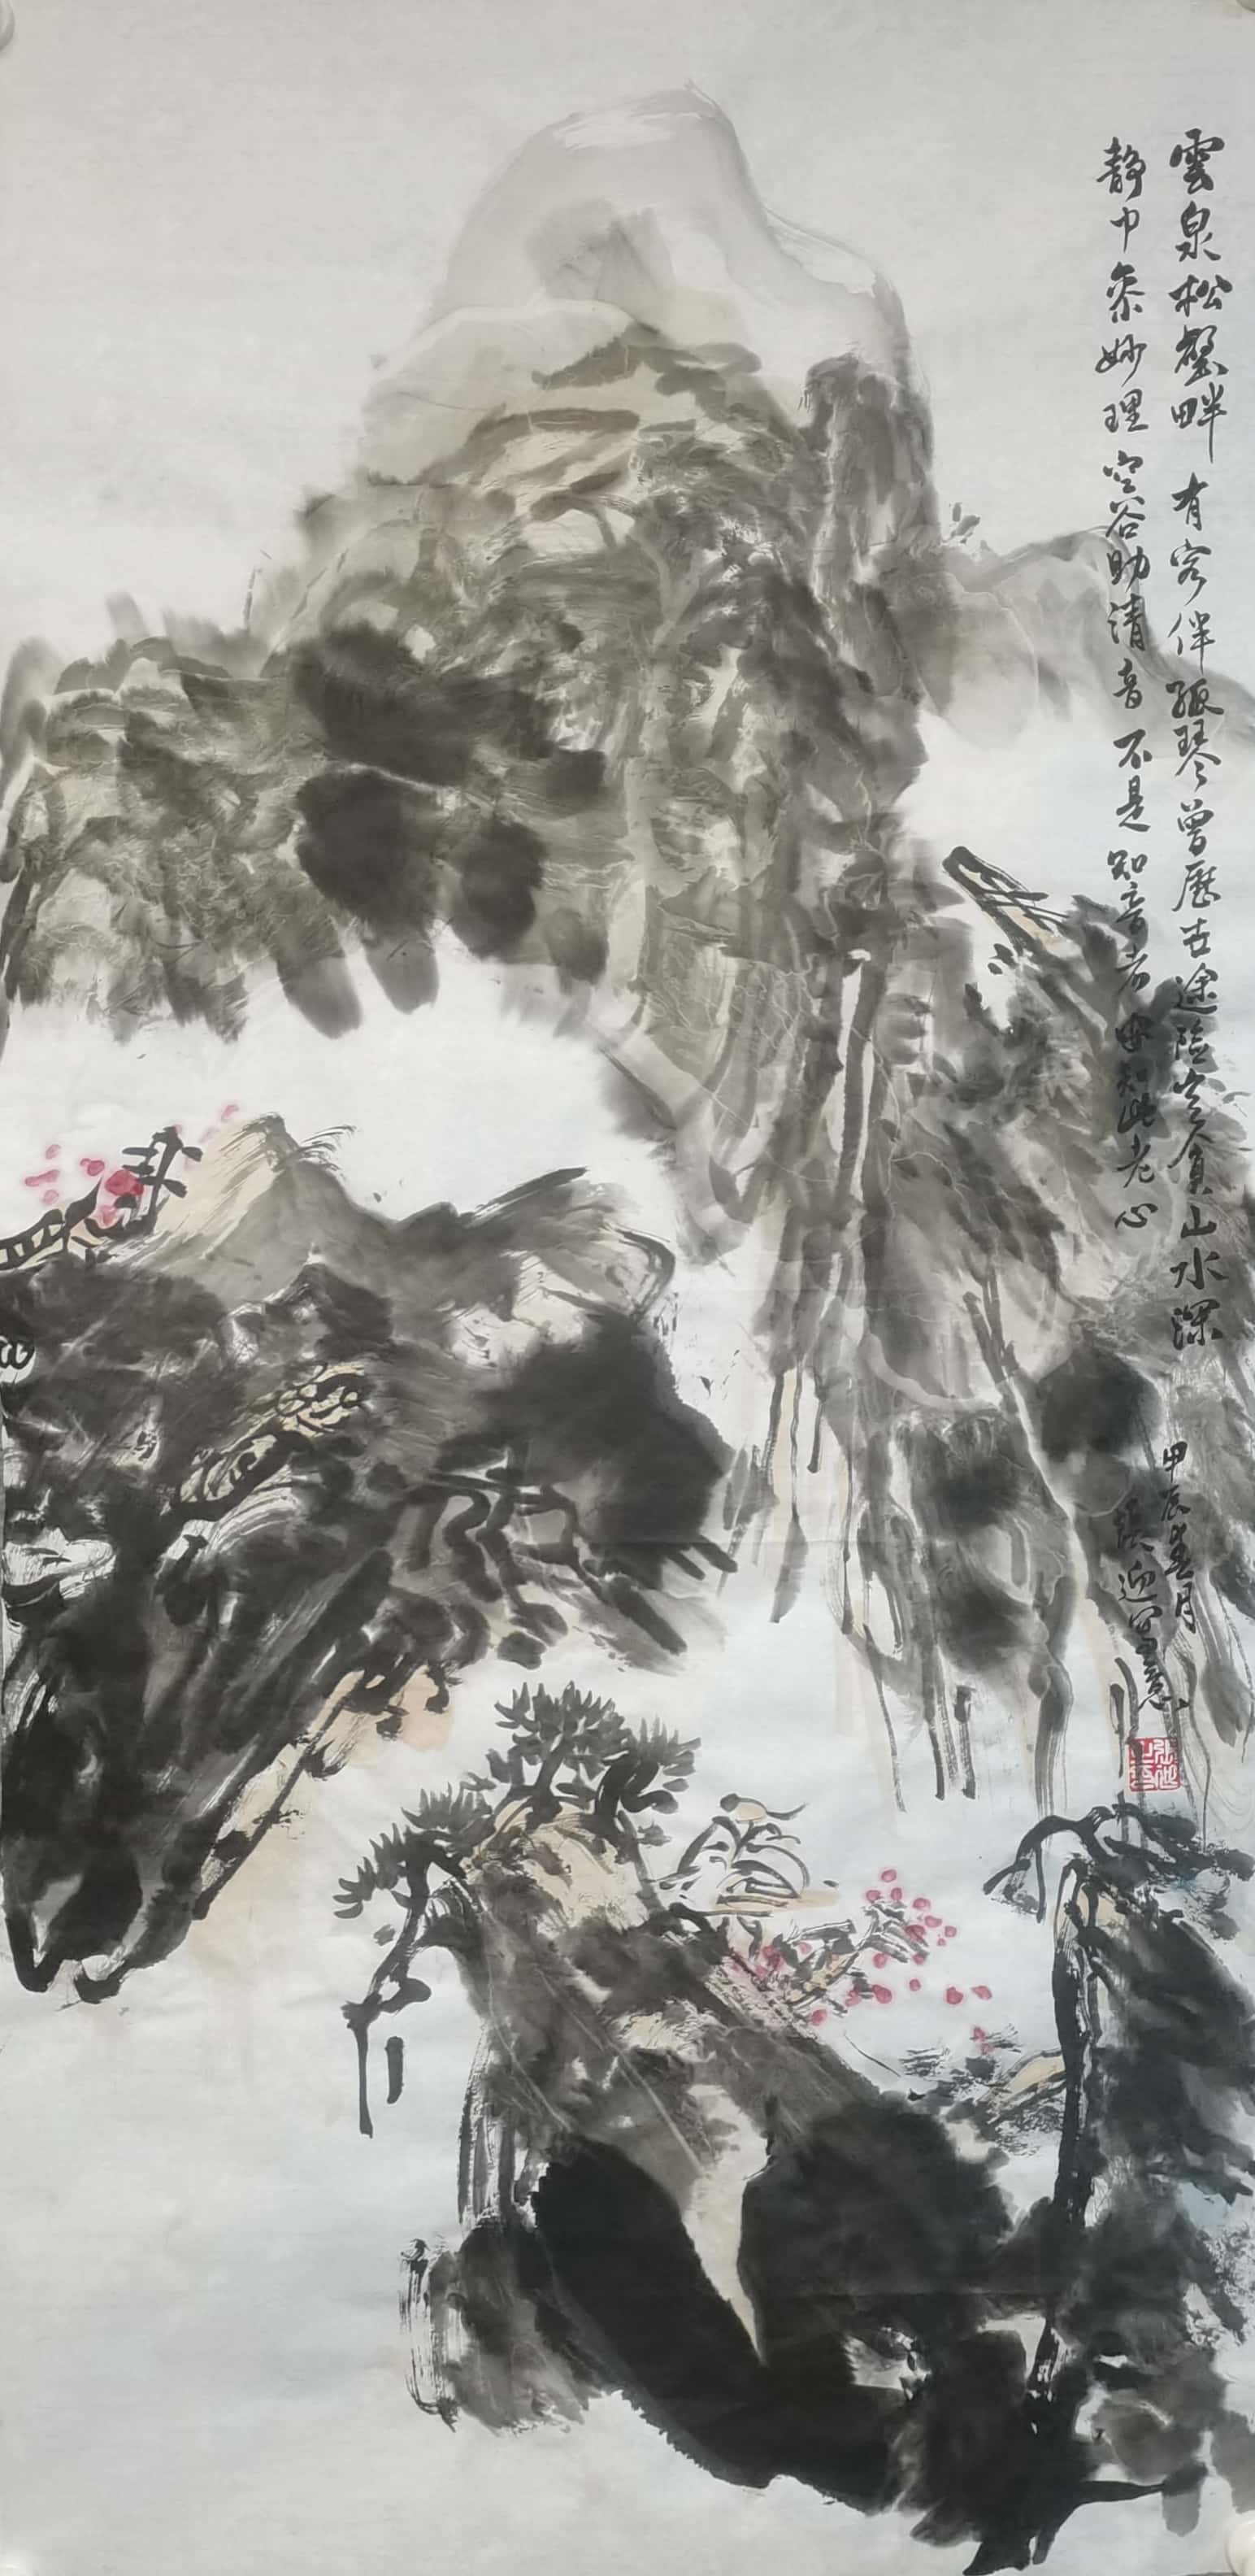 雲泉松壑畔 有客伴孤琴 曾歷古途險 貪山水深
静中参妙理 空谷助清音 不是知音者 安知此老心
甲辰春月
迎寫意